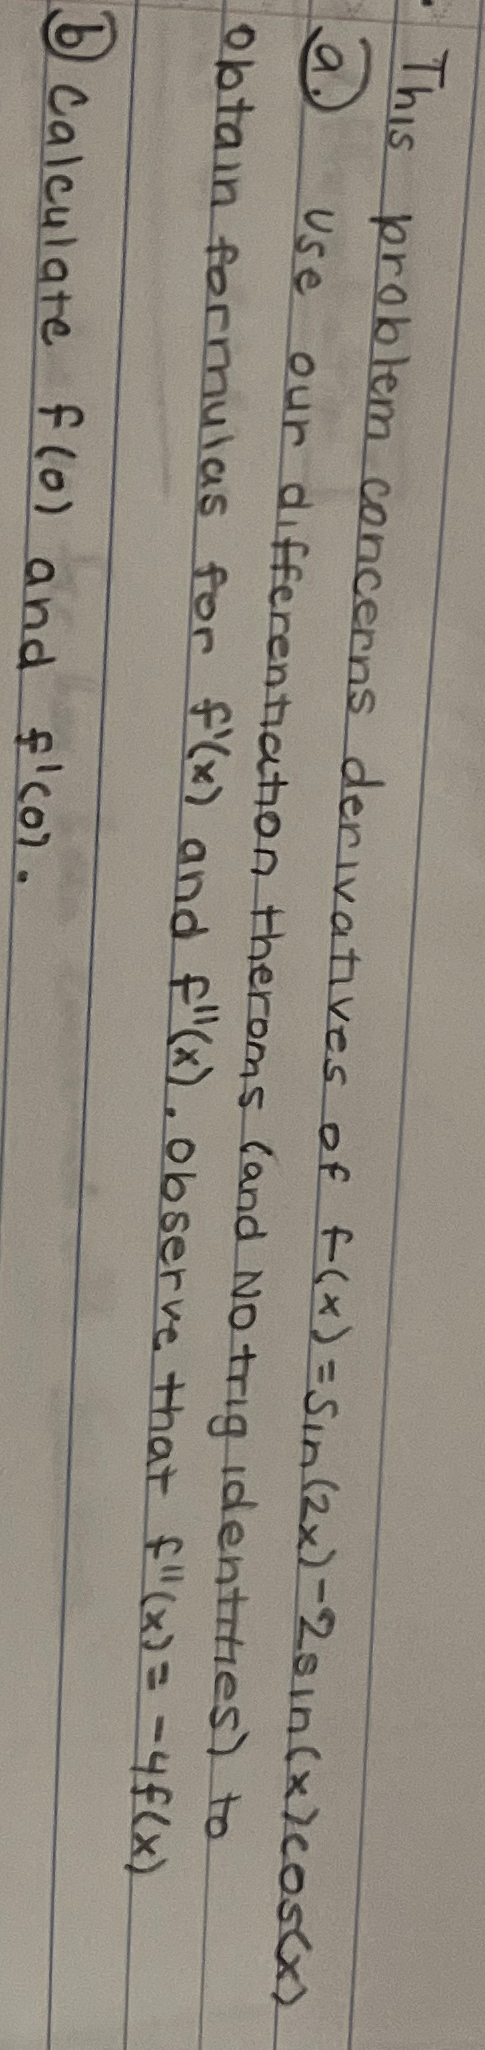 This problem concerns derivatives of f(x)=Sin(2x)-2sin(x)cos(x)
a. Use our differentiation theroms (and No trig identities) to
obtain formulas for f'(x) and f''(x). Observe that f''(x)= -4f(x)
b Calculate f(0) and f'(0).